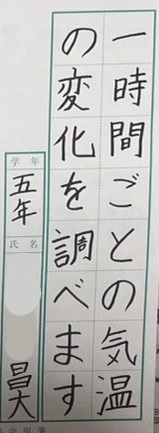 一時間ごとの気温
の変化を調べます
学年
五年
氏名
昌大